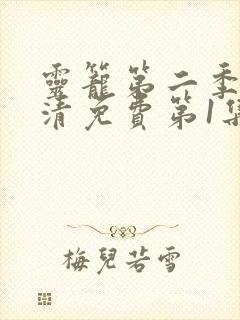 靈籠第二季
清免費第1集
梅兒若雪